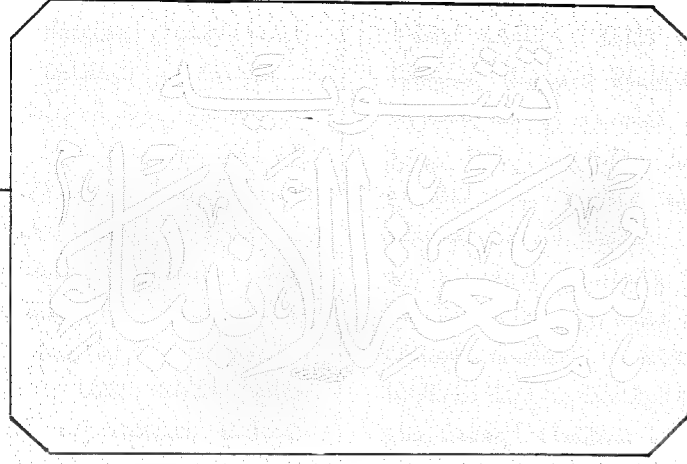 تشويه
سمعة الأنبياء